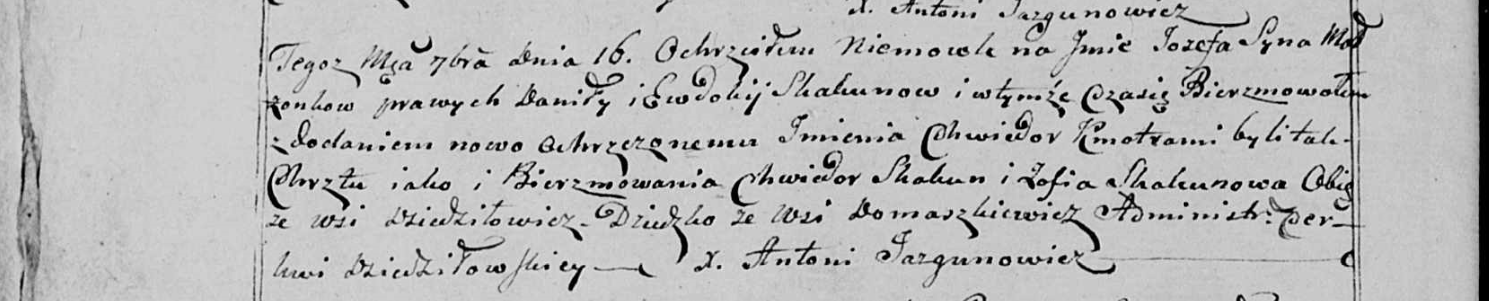 X. Antoni Jazgunowicz
Tegoz Mca 7bra Dnia 16. Ochrzciłem Niemowle na Jmie Jozefa Syna Mał
zonkow prawych Daniły i Ewdokij Skakunow i wtymże Czasie Bierzmowołem
z dodaniem nowo ochrzczonemu Jmienia Chwiedor Kmotrami byli tak
Chrztu iako i Bierzmowania Chwiedor Skakun i Zofia Skakunowa Obie
ze wsi Dziedziłowicz Dziedzko ze Wsi Domaszkiewicz Administr: Cer-
kwi Dziedziłowskiey X. Antoni Jazgunowicz